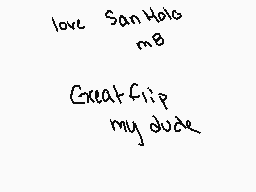 love San Holo
m8
Great flip
my dude